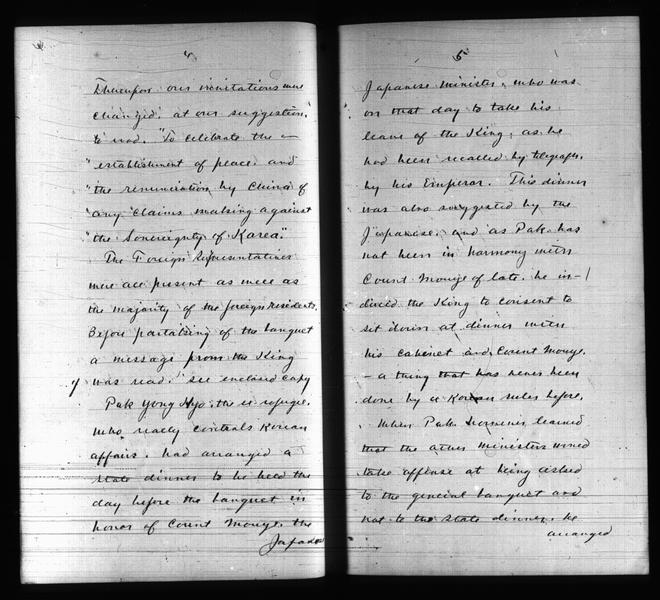 4
Thereupon our invitations were
changed, at our suggestion,
to read. "To celebrate the —
"establishment of peace and
"the renunciation by China of
"any claims making against
"the Sovereignty of Korea."
The Foreign Representatives
were all present as were as
the majority of the foreign residents.
Before partaking of the banquet
a message from the King
was read. See enclosed copy
Pak Yong Hyo, the ex refugee,
who really controls Korean
affairs, had arranged a
state dinner to be held the
day before the banquet in
honor of Count Inouye, the
Japanese
5
Japanese minister, who was
on that day to take his
leave of the King, as he
had been recalled by telegraph,
by his Emperor. This dinner
was also suggested by the
Japanese, and as Pak has
not been in harmony with
Count Inouye of late, he in-
duced the King to consent to
sit down at dinner with
his cabinet and Count Inouye.
— a thing that has never been
done by a Korean ruler before.
When Pak however learned
that the other ministers would
take offense at being asked
to the general banquet and
not to the state dinner, he
arranged